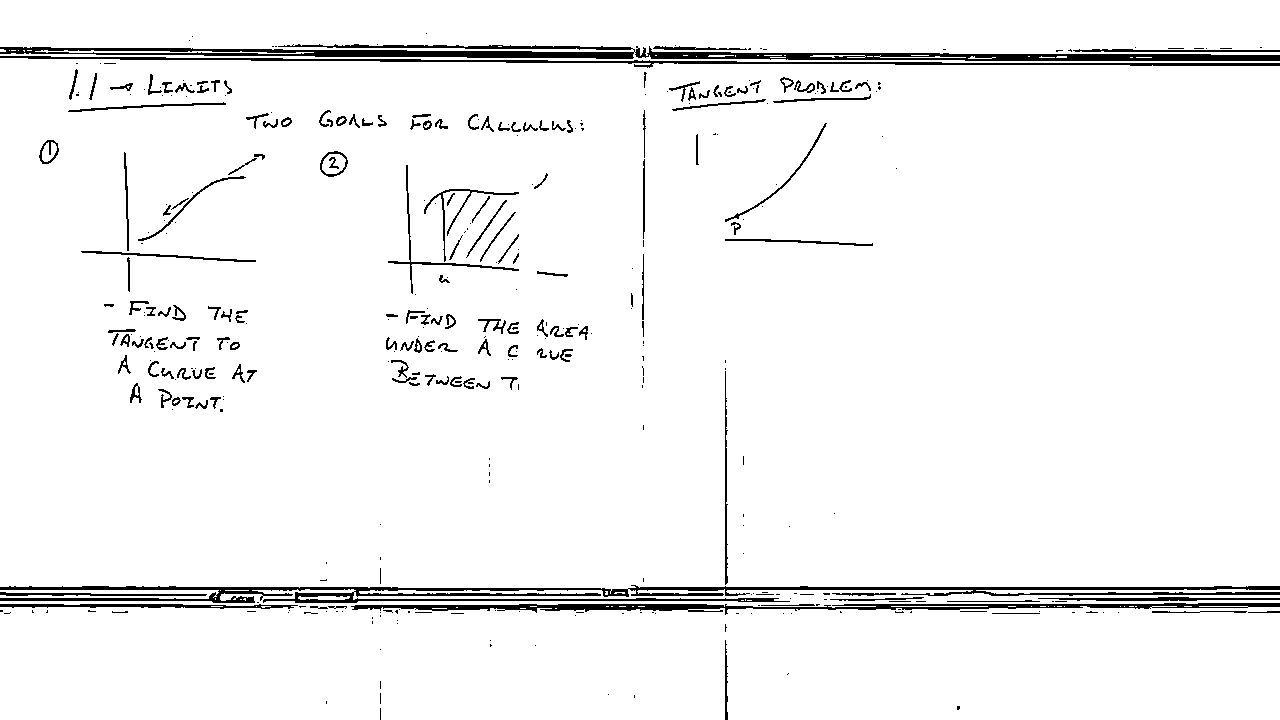 1.1 → LIMITS
TWO GOALS FOR CALCULUS:
①
- FIND THE
TANGENT TO
A CURVE AT
A POINT.
②
a
- FIND THE AREA
UNDER A C RUE
BETWEEN
TANGENT PROBLEM:
P